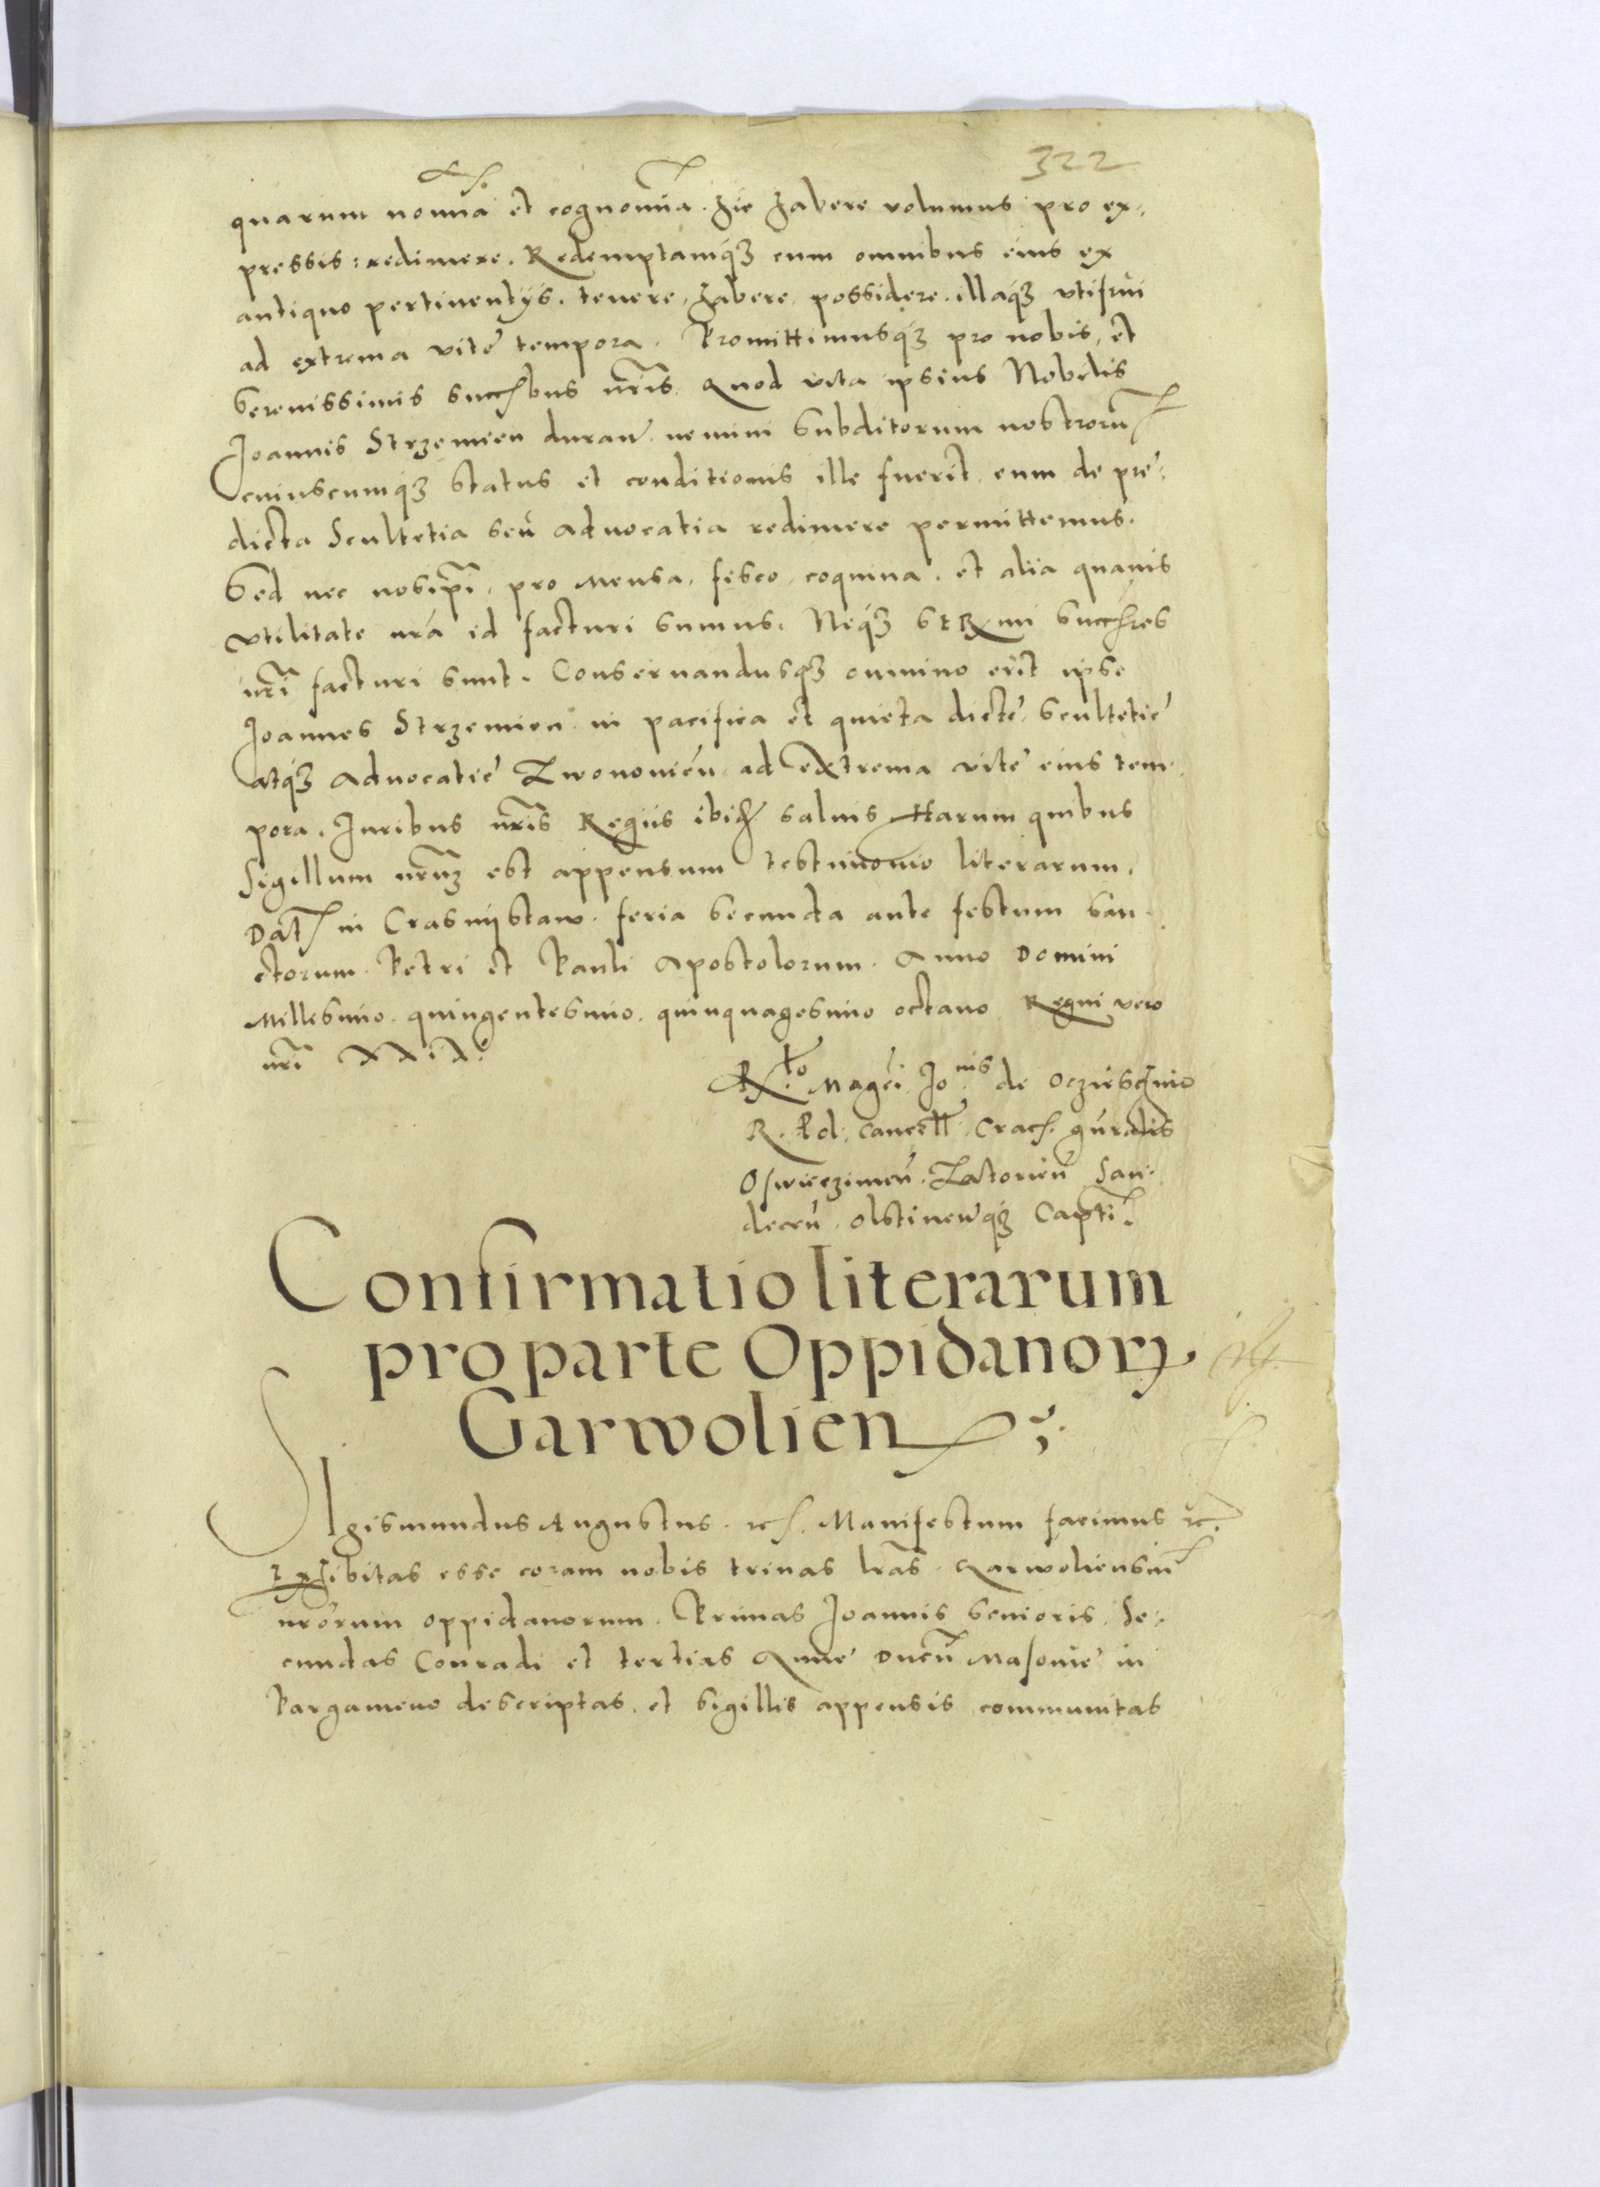 322
quarum nomina et cognomina hic habere volumus pro ex,,
pressis: redimere. Redemptamq3 cum omnibus eius ex
antiquo pertinentijs. tenere, habere, possidere, illaq3 vtifrui
ad extrema vite tempora. Promittimusq3 pro nobis, et
Serenissimis succbus nris. Quod vita ipsius Nobilis
Joannis Strzemien duran. nemini Subditorum nostroru
cuiuscumq3 status et conditionis ille fuerit, eum de pre,
dicta Scultetia seu Aduocatia redimere permittemus.
Sed nec nosipi, pro Mensa, fisco, coquina, et alia quauis
vtilitate nra id facturi sumus. Neq3 succres
nri facturi sunt. Conseruandusq3 omnino erit ipse
Joannes Strzemien in pacifica et quieta dicte, scultetie
atq3 Aduocatie Zwonouien, ad extrema vite eius tem,
pora. Juribus nris Regiis ibid saluis Harum quibus
Sigillum nrum est appensum testimonio literarum.
Dat in Crasnijstaw. feria secunda ante festum San,
ctorum. Petri et Pauli Apostolorum. Anno Domini
Millesimo. quingentesimo. quinquagesimo octauo. Regni vero
nri XXIX.
Rlo Magci Jonis de Oczieschino
R. Pol. Cancell. Crac. gnralis
Oswieczimen. Zatorien San,
decen. Olstinenq3 Capti.
Confirmatio literarum
pro parte Oppidanor
Garwolien
Sigismundus Augustus. etc. Manifestum facimus etc.
Exhibitas esse coram nobis trinas lras. Garwoliensiu
nrorum oppidanorum. Primas Joannis senioris. Se,
cundas Conradi et tertias Anne Ducu Masouie in
Pargameno descriptas, et sigillis appensis communitas